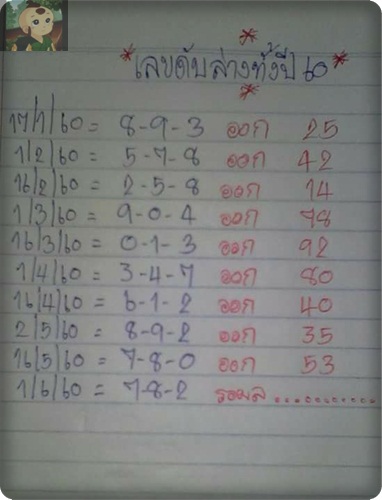 * เลขดับล่างทั้งปี 60 *
17/1/60 = 8-9-3 ออก 25
1/2/60 = 5-7-8 ออก 42
16/2/60 = 2-5-8 ออก 14
1/3/60 = 9-0-4 ออก 78
16/3/60 = 0-1-3 ออก 92
1/4/60 = 3-4-7 ออก 80
16/4/60 = 6-1-2 ออก 40
2/5/60 = 8-9-2 ออก 35
16/5/60 = 7-8-0 ออก 53
1/6/60 = 7-8-2 รอผล............